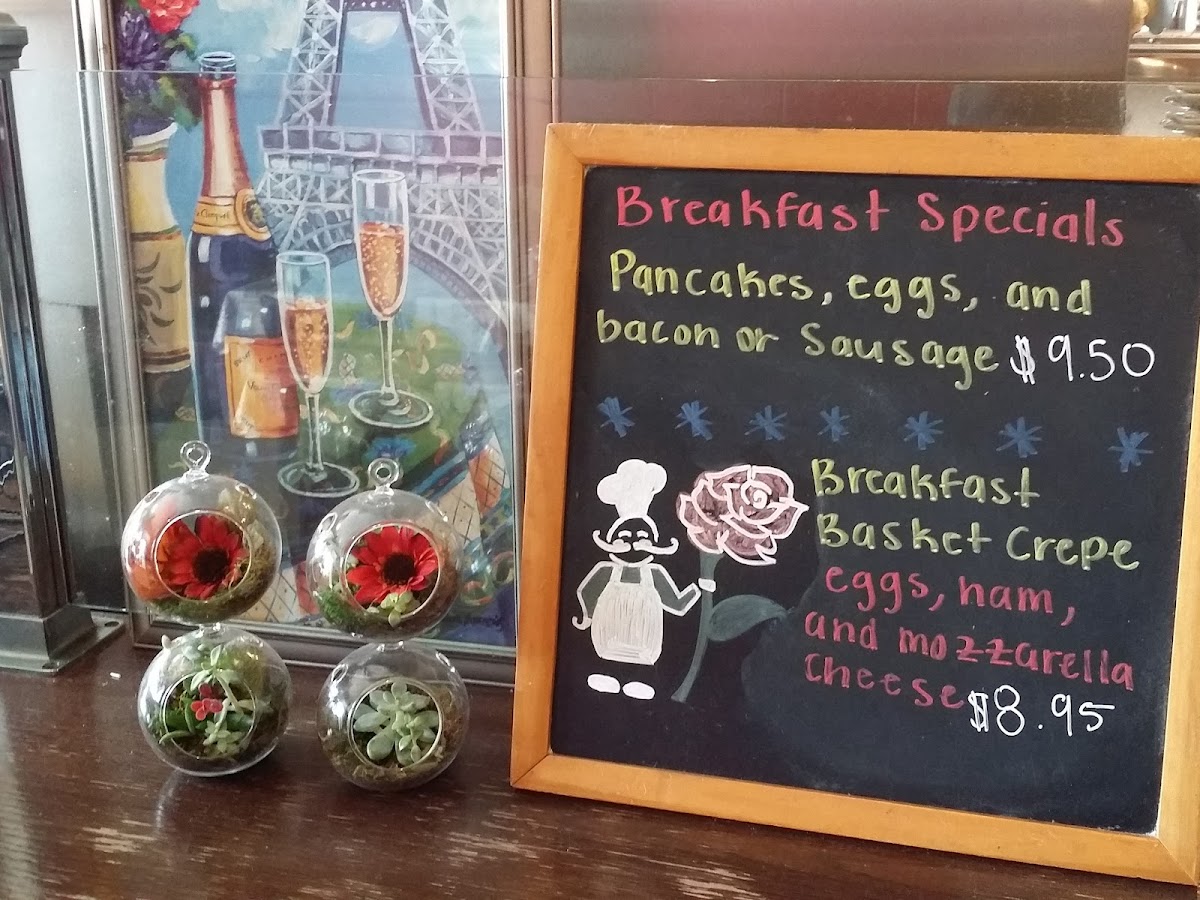 Breakfast Specials
Pancakes, eggs, and
bacon or Sausage $9.50
Breakfast
Basket Crepe
eggs, ham,
and mozzarella
Cheese $8.95